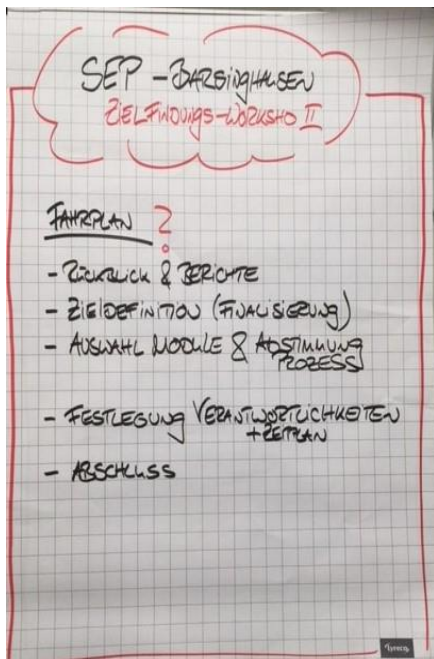 SEP - BARSINGHAUSEN
ZIELFINDUNGS-WORKSHO II
FAHRPLAN ?
- RÜCKBLICK & BERICHTE
- ZIELDEFINITION (FINALISIERUNG)
- AUSWAHL MODULE & ABSTIMMUNG
PROZESS
- FESTLEGUNG VERANTWORTLICHKEITEN
+ ZEITPLAN
- ABSCHLUSS